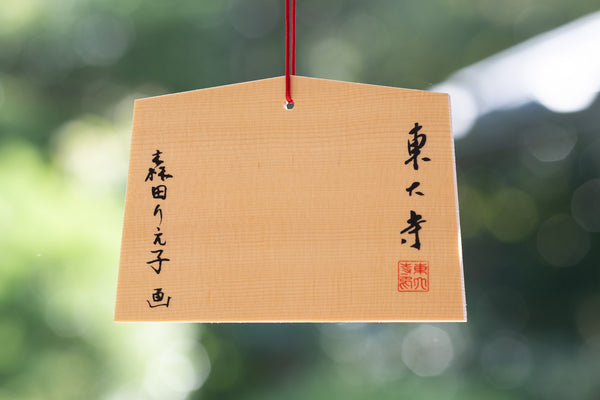 東大寺
東大寺印
森田りえ子 画